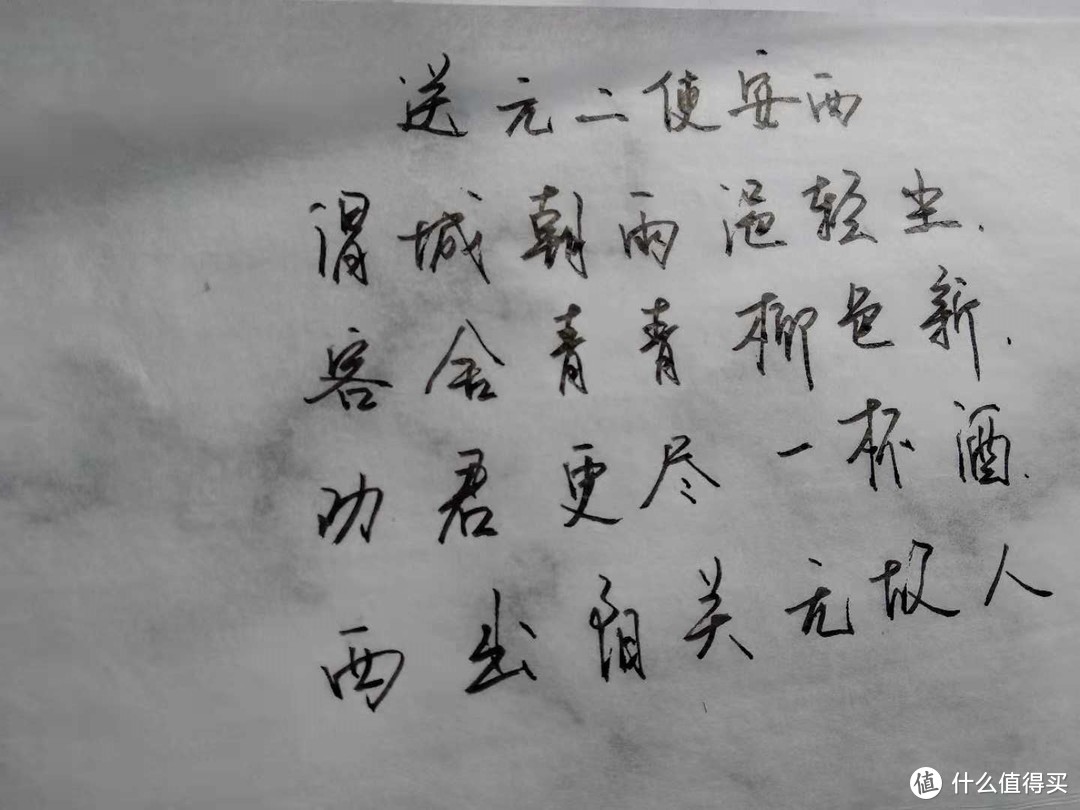 送元二使安西
渭城朝雨浥轻尘.
客舍青青柳色新.
劝君更尽一杯酒.
西出阳关无故人
值 什么值得买